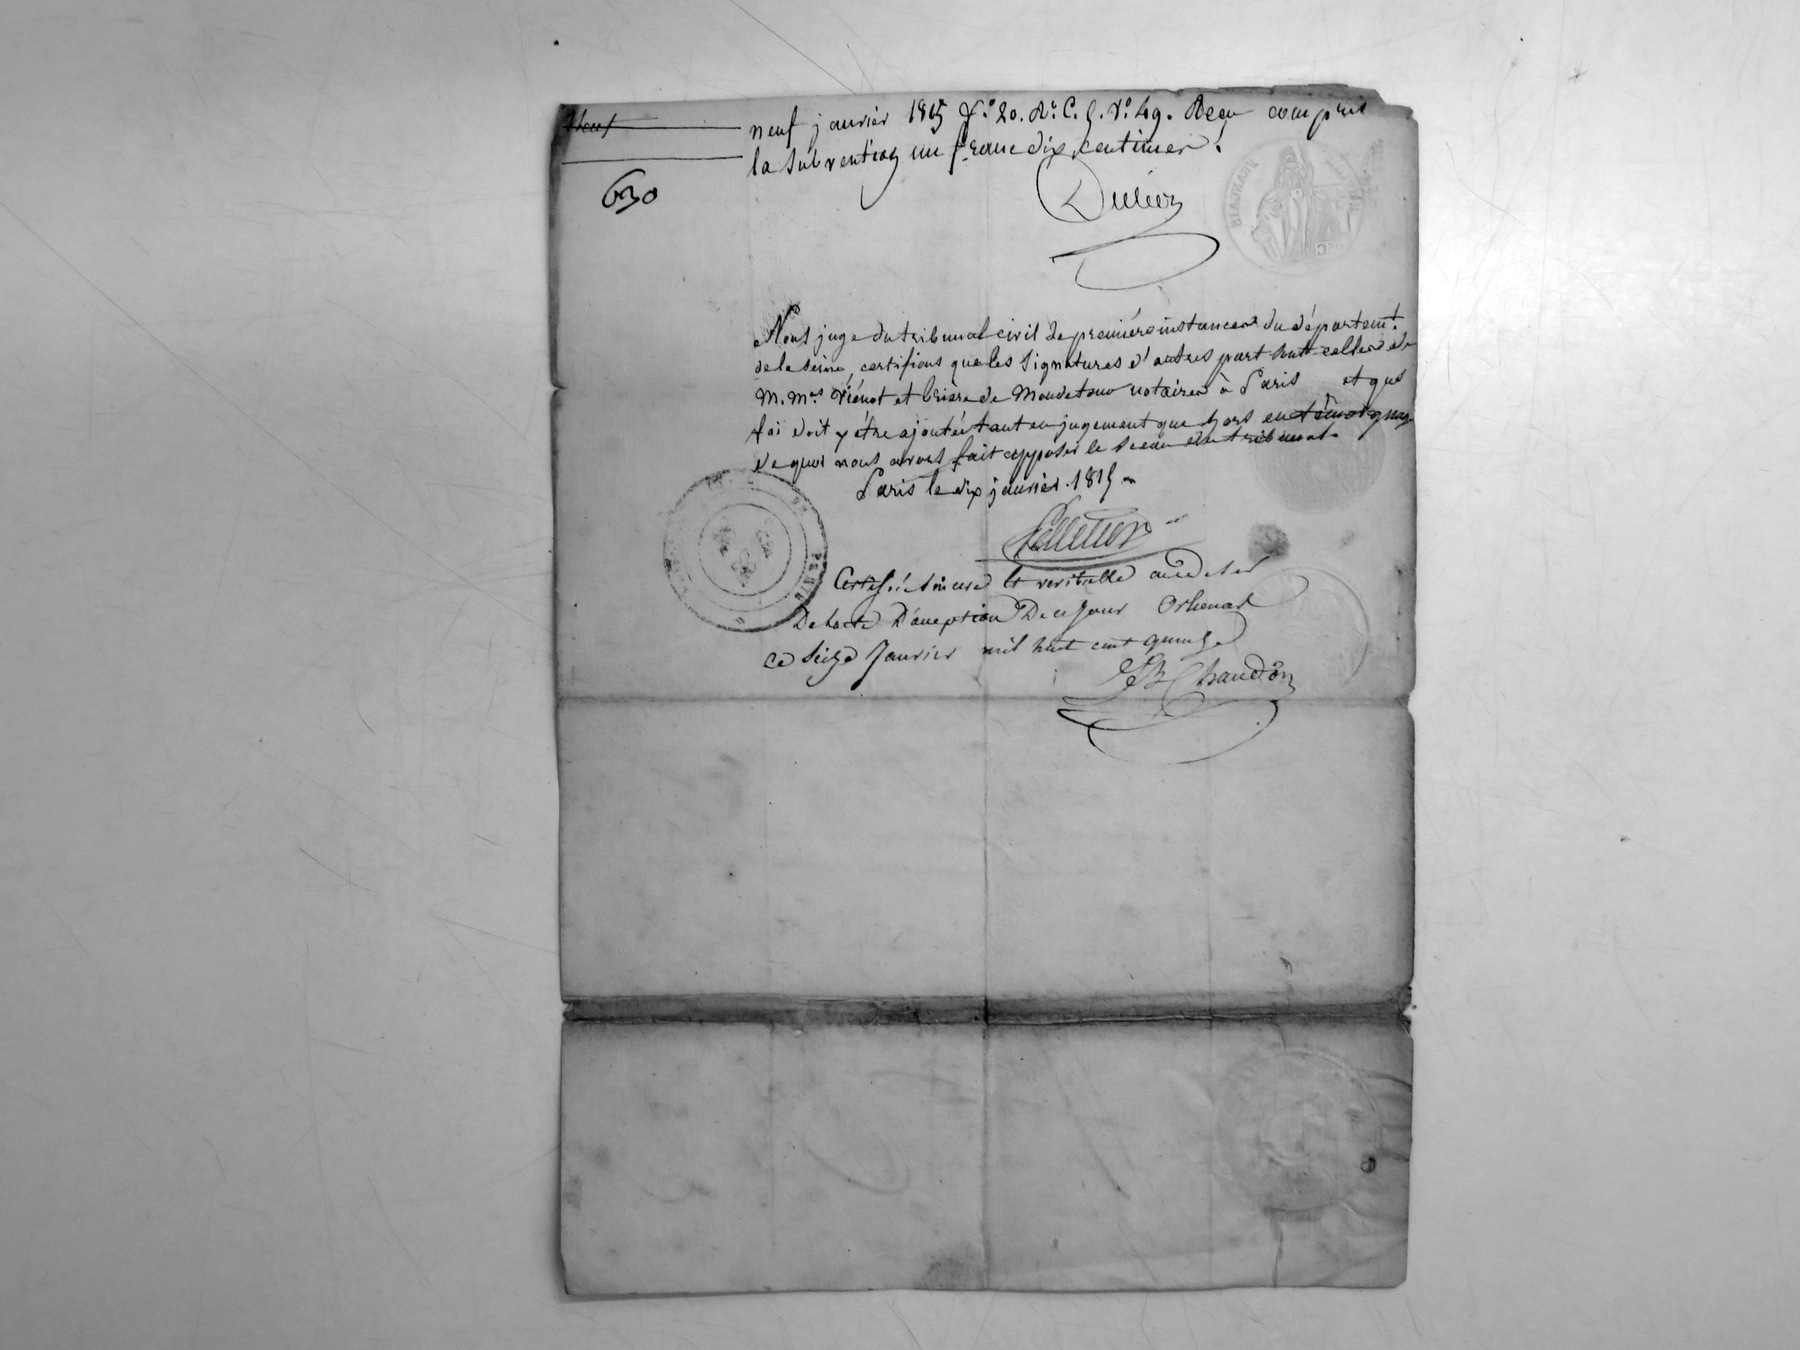 neuf janvier 1815 f.° 20. R.° C. 5. v.° 49. Reçu compris
la subvention un franc dix centimes.
630
Nous juge du tribunal civil de première instance du départemt.
de la Seine, certifions que les signatures d'autres part sont celles de
M. Mes Viénot et Brière de Mondetour notaires à Paris et que
foi doit y être ajoutée tant en jugement que hors en témoignage
de quoi nous avons fait apposer le sceau du tribunal.
Paris le dix janvier 1815
Pelletier
Certifié sincere et veritable au desir
De lacte D'aception De ce jour
Ce Seize Janvier mil huit cent quinze
JB Chandon